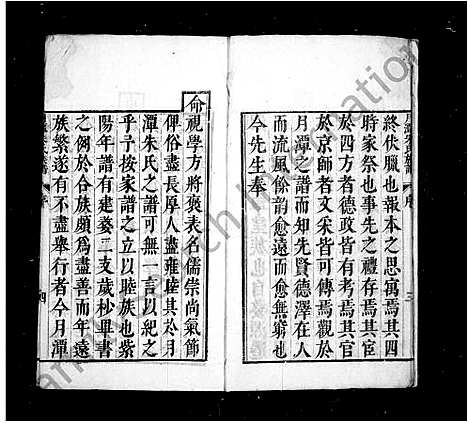 終伏臘也報本之思寓焉其四
時家祭也事先之禮存焉其宦
於四方者德政皆有考焉其官
於京師者文采皆可傳焉觀於
月潭之譜而知先賢德澤在人
而流風餘韵愈遠而愈無窮也
今先生奉
命視學方將褒表名儒崇尚氣節
俾俗盡長厚人盡雍睦其於月
潭朱氏之譜可無一言以紀之
乎予按家譜之立以睦族也紫
陽年譜有建婺二支歲杪畢書
之例於合族頗為盡善而年遠
族繁遂有不盡舉行者今月潭
三
四